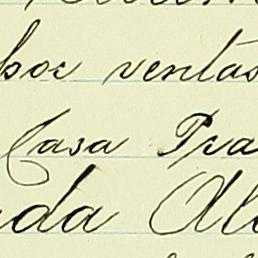 por ventas
Casa Pra
da Al